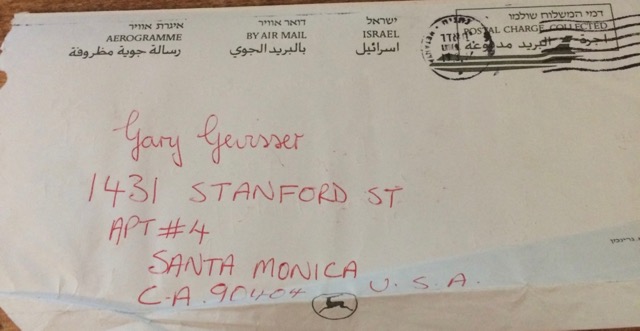 איגרת אוויר
AEROGRAMME
رسالة جوية مظروفة
דואר אוויר
BY AIR MAIL
بالبريد الجوي
ישראל
ISRAEL
اسرائيل
דמי המשלוח שולמו
POSTAL CHARGE COLLECTED
اجرة البريد مدفوعة
נתניה
Gary Gevisser
1431 STANFORD ST
APT #4
SANTA MONICA
C.A. 90404 U.S.A.